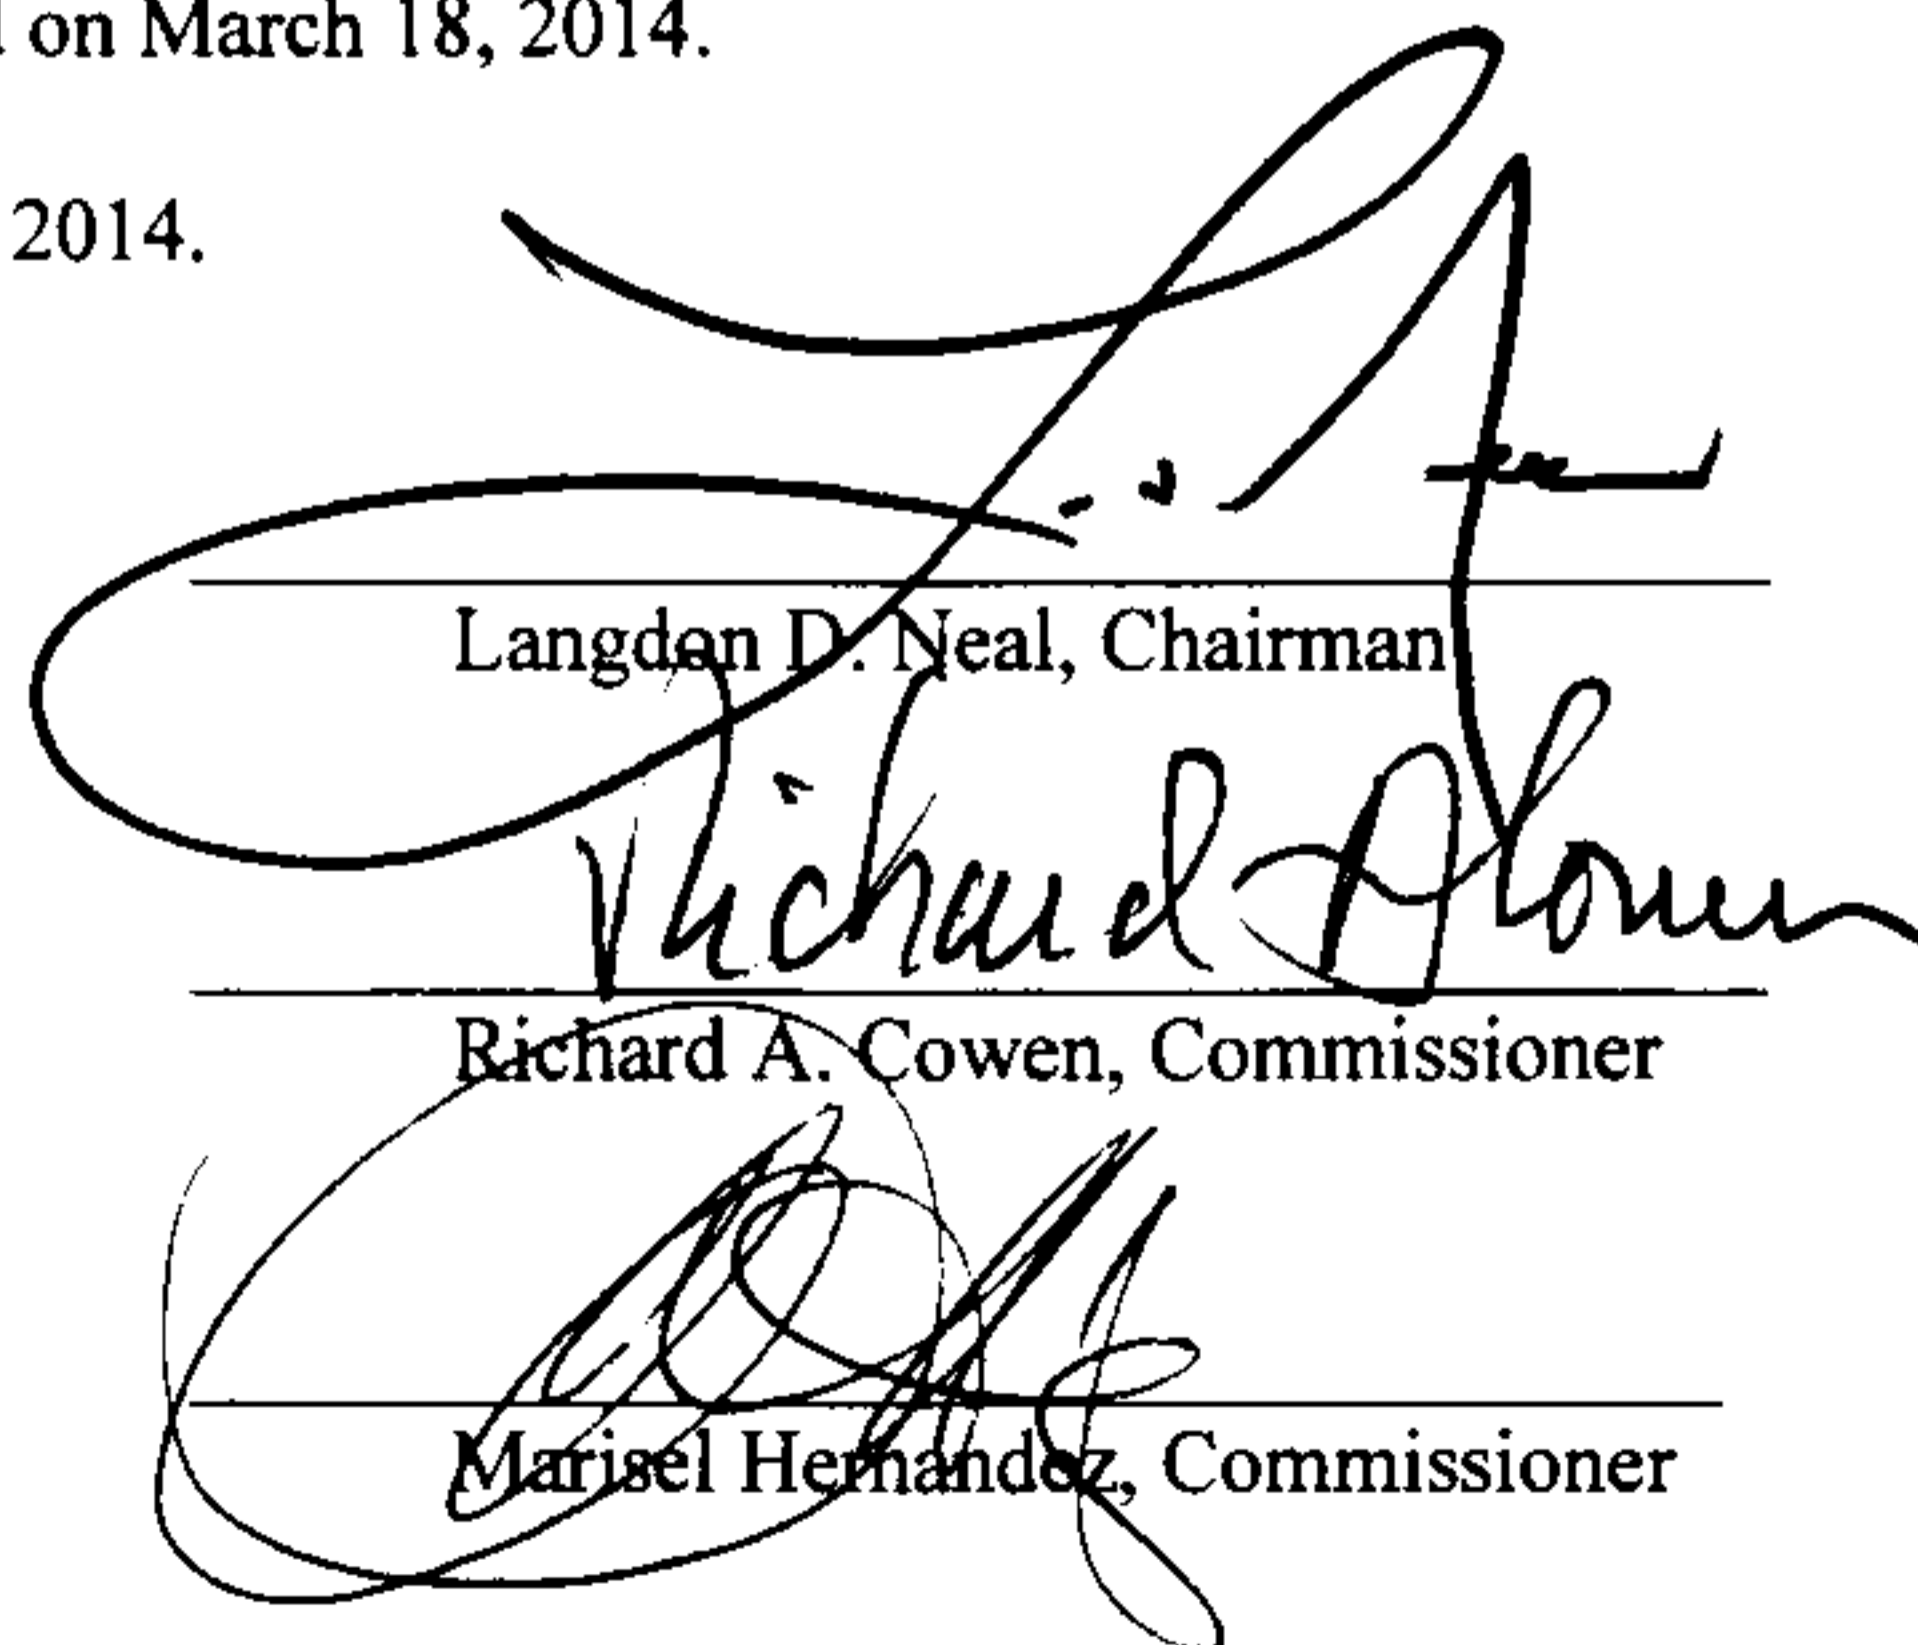 on March 18, 2014.
2014.
Langdon D. Neal, Chairman
Richard
Richard A. Cowen, Commissioner
Marisel Hernandez, Commissioner